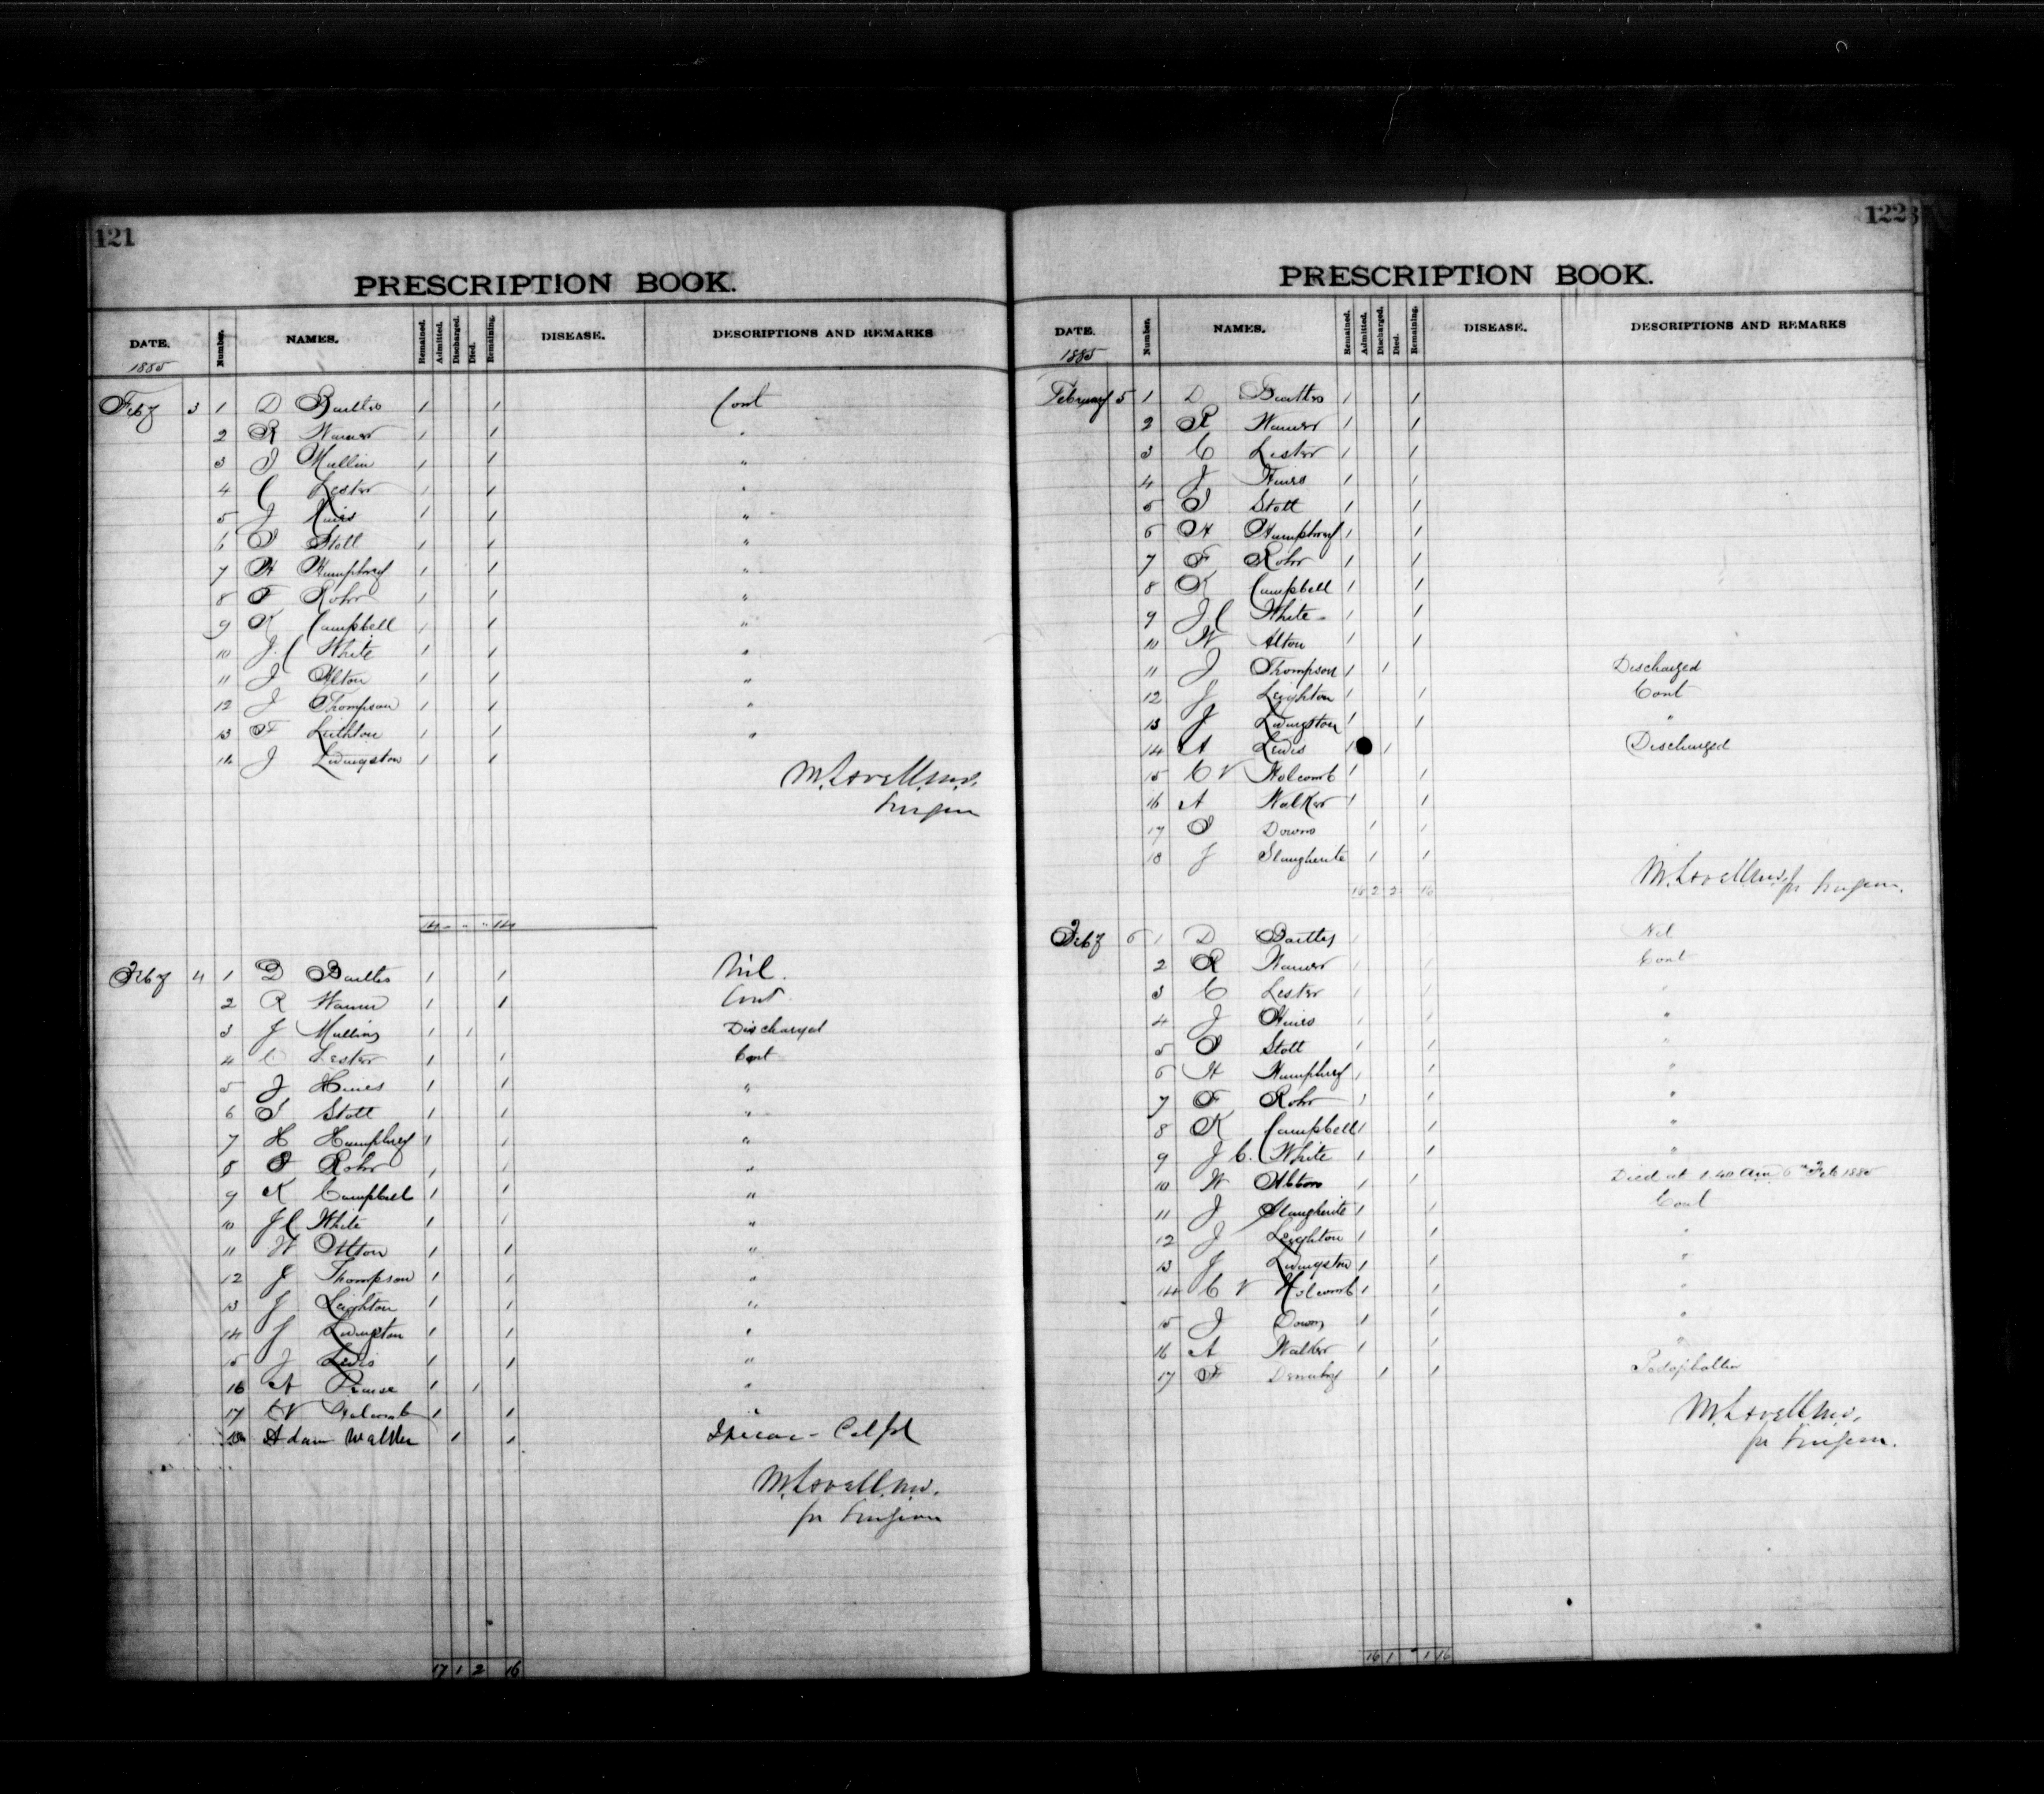 121
PRESCRIPTION BOOK.
DATE. Number. NAMES. Remained. Admitted. Discharged. Died. Remaining. DISEASE. DESCRIPTIONS AND REMARKS
1885
Feby 3 1 D Bailtes 1 1 Cont
2 R Warner 1 1 "
3 J Mullin 1 1 "
4 C Lester 1 1 "
5 J Hines 1 1 "
6 J Stott 1 1 "
7 H Humphrey 1 1 "
8 F Rohr 1 1 "
9 K Campbell 1 1 "
10 J. C White 1 1 "
11 J Alton 1 1 "
12 J Thompson 1 1 "
13 F Leithton 1 1 "
14 J Livingston 1 1
M. Lovell M.D.
Surgeon
14 - " " 14
Feby 4 1 D Bailtes 1 1 Nil.
2 R Warner 1 1 Cont
3 J Mullins 1 1 Discharged
4 C Lester 1 1 Cont
5 J Hines 1 1 "
6 J Stott 1 1 "
7 H Humphrey 1 1 "
8 F Rohr 1 1 "
9 K Campbell 1 1 "
10 J C White 1 1 "
11 W Alton 1 1 "
12 J Thompson 1 1 "
13 J Leighton 1 1 "
14 J Livingston 1 1 "
15 J Lewis 1 1 "
16 A 1 1 "
17 C V Holcomb 1 1 "
18 Adam Walker 1 1
M. Lovell M.D.
for Surgeon
17 1 2 16
122
PRESCRIPTION BOOK.
DATE. Number. NAMES. Remained. Admitted. Discharged. Died. Remaining. DISEASE. DESCRIPTIONS AND REMARKS
1885
February 5 1 D Bailtes 1 1
2 R Warner 1 1
3 C Lester 1 1
4 J Hines 1 1
5 J Stott 1 1
6 H Humphrey 1 1
7 F Rohr 1 1
8 K Campbell 1 1
9 J C White 1 1
10 W Alton 1 1
11 J Thompson 1 1 Discharged
12 J Leighton 1 1 Cont
13 J Livingston 1 1 "
14 A Lewis 1 1 Discharged
15 C V Holcomb 1 1
16 A Walker 1 1
17 J Downs 1 1
18 J Slaugherite 1 1
M. Lovell M.D. for Surgeon.
16 2 2 16
Feby 6 1 D Bailtes 1 1 Nil
2 R Warner 1 1 Cont
3 C Lester 1 1 "
4 J Hines 1 1 "
5 J Stott 1 1 "
6 H Humphrey 1 1 "
7 F Rohr 1 1 "
8 K Campbell 1 1 "
9 J C. White 1 1 "
10 W Alton 1 1 Died at 1.40 am 6th Feb 1885
11 J Slaugherite 1 1 Cont
12 J Leighton 1 1 "
13 J Livingston 1 1 "
14 C V Holcomb 1 1 "
15 J Downs 1 1 "
16 A Walker 1 1 "
17 F 1 1 Podophallin
M. Lovell M.D.
for Surgeon.
16 1 " 1 16